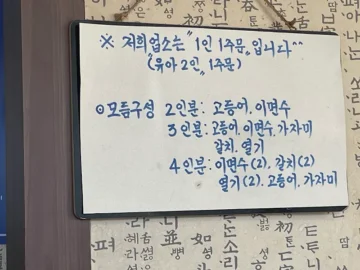 ※ 저희업소는 "1인 1주문" 입니다^^
(유아 2인, 1주문)
⊙모듬구성 2인분: 고등어, 이면수
3인분: 고등어, 이면수, 가자미
갈치, 열기
4인분: 이면수(2), 갈치(2)
열기(2), 고등어, 가자미